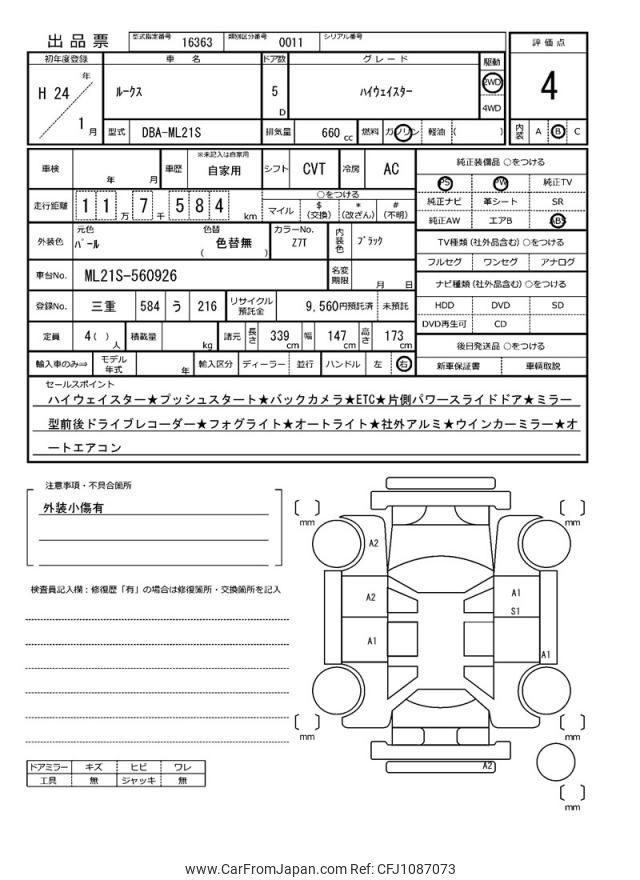 出品票 型式指定番号 16363 類別区分番号 0011 シリアル番号
評価点
4
初年度登録 車名 ドア数 グレード 駆動
H 24 年 1月 ルークス 5 D ハイウェイスター 2WD 4WD
型式 DBA-ML21S 排気量 660 cc 燃料 ガソリン 軽油 ( )
内装 A B C
車検 年 月 車歴 ※未記入は自家用 自家用 シフト CVT 冷房 AC
走行距離 1 1 万 7 千 5 8 4 km
○をつける
マイル $(交換) *(改ざん) #(不明)
外装色 元色 パール 色替 色替無 ( ) カラーNo. Z7T 内装色 ブラック
車台No. ML21S-560926 名変期限 月 日
登録No. 三重 584 う 216 リサイクル預託金 9,560円預託済 未預託
定員 4( )人 積載量 kg 諸元 長さ 339 cm 幅 147 cm 高さ 173 cm
輸入車のみ⇒ モデル年式 年 輸入区分 ディーラー 並行 ハンドル 左 右
純正装備品 ○をつける
PS PW 純正TV
純正ナビ 革シート SR
純正AW エアB ABS
TV種類(社外品含む)○をつける
フルセグ ワンセグ アナログ
ナビ種類(社外品含む)○をつける
HDD DVD SD
DVD再生可 CD
後日発送品 ○をつける
新車保証書 車輌取説
セールスポイント
ハイウェイスター★プッシュスタート★バックカメラ★ETC★片側パワースライドドア★ミラー
型前後ドライブレコーダー★フォグライト★オートライト★社外アルミ★ウインカーミラー★オ
ートエアコン
注意事項・不具合箇所
外装小傷有
検査員記入欄：修復歴「有」の場合は修復箇所・交換箇所を記入
ドアミラー キズ ヒビ ワレ
工具 無 ジャッキ 無
mm
mm
A2
A2
A1
S1
A1
A1
mm
mm
A2
mm
www.CarFromJapan.com Ref: CFJ1087073